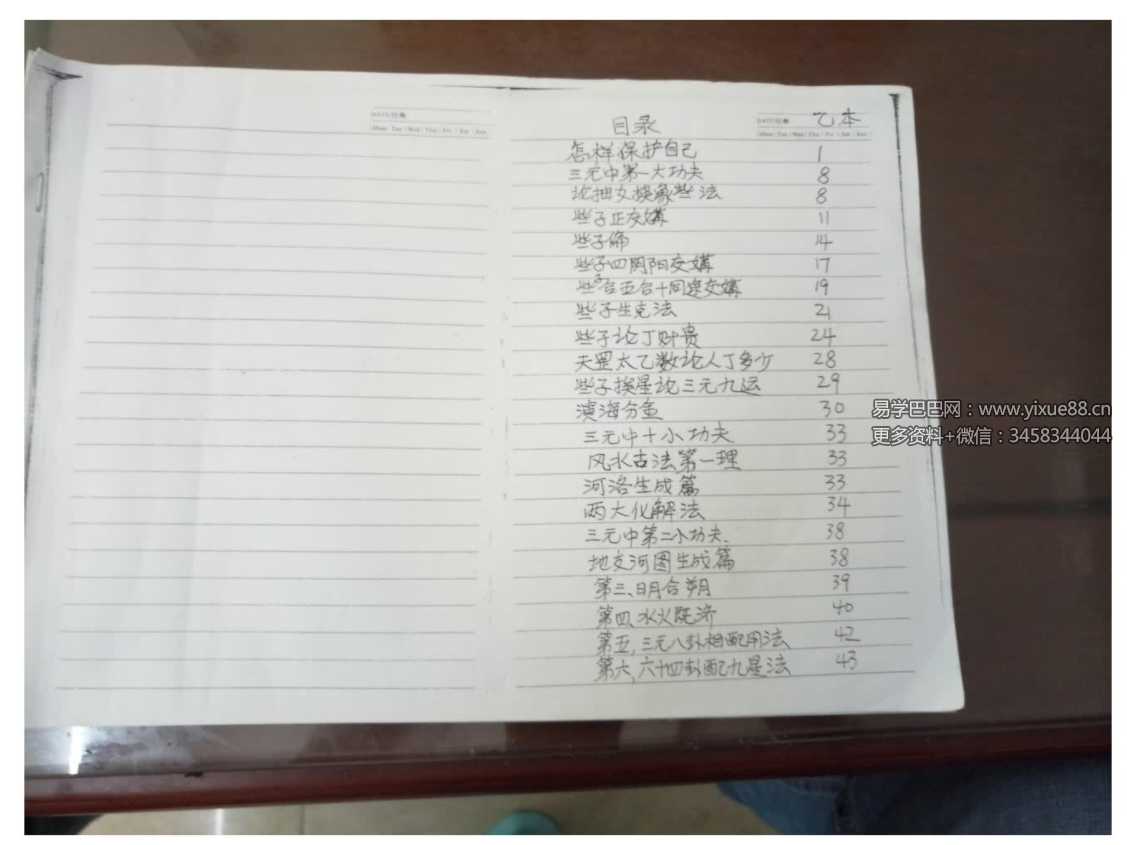 DATE/日期
Mon / Tue / Wed / Thu / Fri / Sat / Sun
目录
DATE/日期
乙本
Mon / Tue / Wed / Thu / Fri / Sat / Sun
怎样保护自己 1
三元中第一大功夫 8
论抽爻换象些法 8
些子正交媾 11
些子偏 14
些子四阴阳交媾 17
些子合五合十同途交媾 19
些子生克法 21
些子论丁财贵 24
天罡太乙数论人丁多少 28
些子挨星论三元九运 29
滇海分金 30
三元中十小功夫 33
风水古法第一理 33
河洛生成篇 33
两大化解法 34
三元中第二小功夫、 38
地支河图生成篇 38
第三、日月合朔 39
第四、水火既济 40
第五,三元八卦相配用法 42
第六,六十四卦配九星法 43
易学巴巴网:www.yixue88.cn
更多资料+微信:3458344044